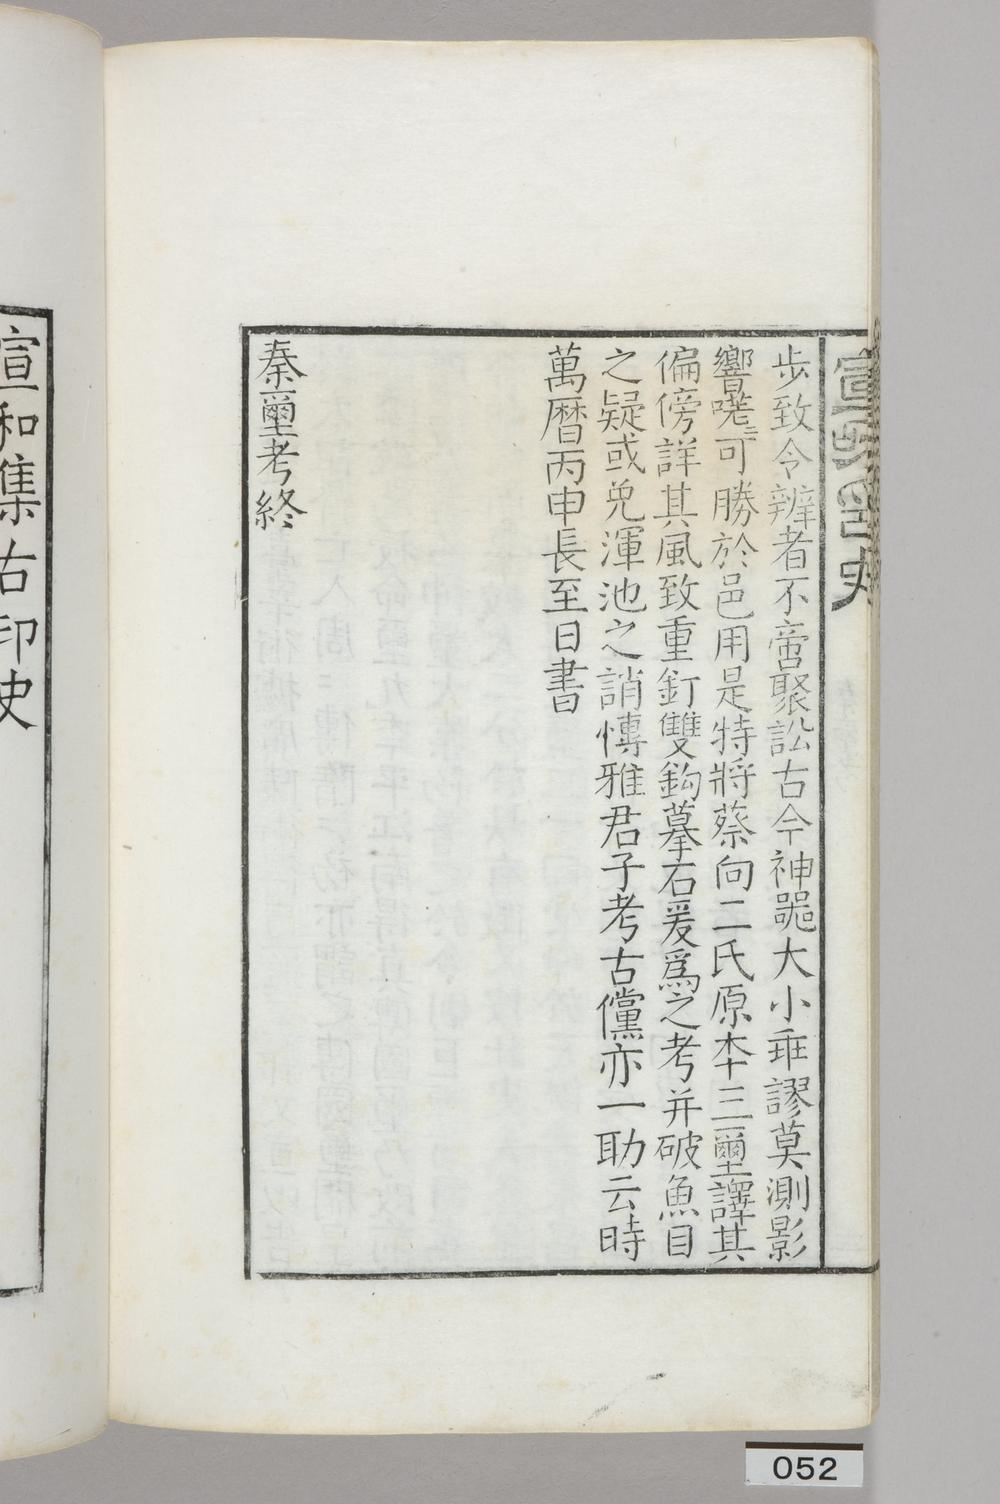 步致令辨者不啻聚訟古今神噐大小乖謬莫測影
響嘵〻可勝於邑用是特將蔡向二氏原本十三璽譯其
偏傍詳其風致重釘雙鈎摹石爰爲之考并破魚目
之疑或免渾池之誚博雅君子考古儻亦一助云時
萬曆丙申長至日書
秦璽考終
宣和集古印史
052